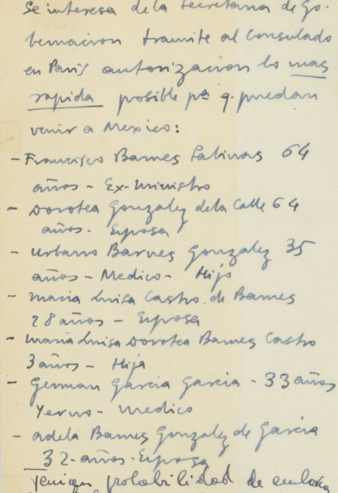 Se interesa de la Secretaria de Go-
bernacion tramite al Consulado
en Paris autorizacion lo mas
rapida posible pa q. puedan
venir a Mexico:
- Francisco Barnes Salinas 64
años - Ex-Ministro
- Dorotea Gonzalez de la Calle 64
años. - Esposa
- Urbano Barnes Gonzalez 35
años - Medico - Hijo
- Maria Luisa Castro de Barnes
28 años - Esposa
- Maria Luisa Dorotea Barnes Castro
3 años - Hija
- German Garcia Garcia - 33 años
Yerno - Medico
- Adela Barnes Gonzalez de Garcia
32 - años - Esposa
Tienen probabilidad de